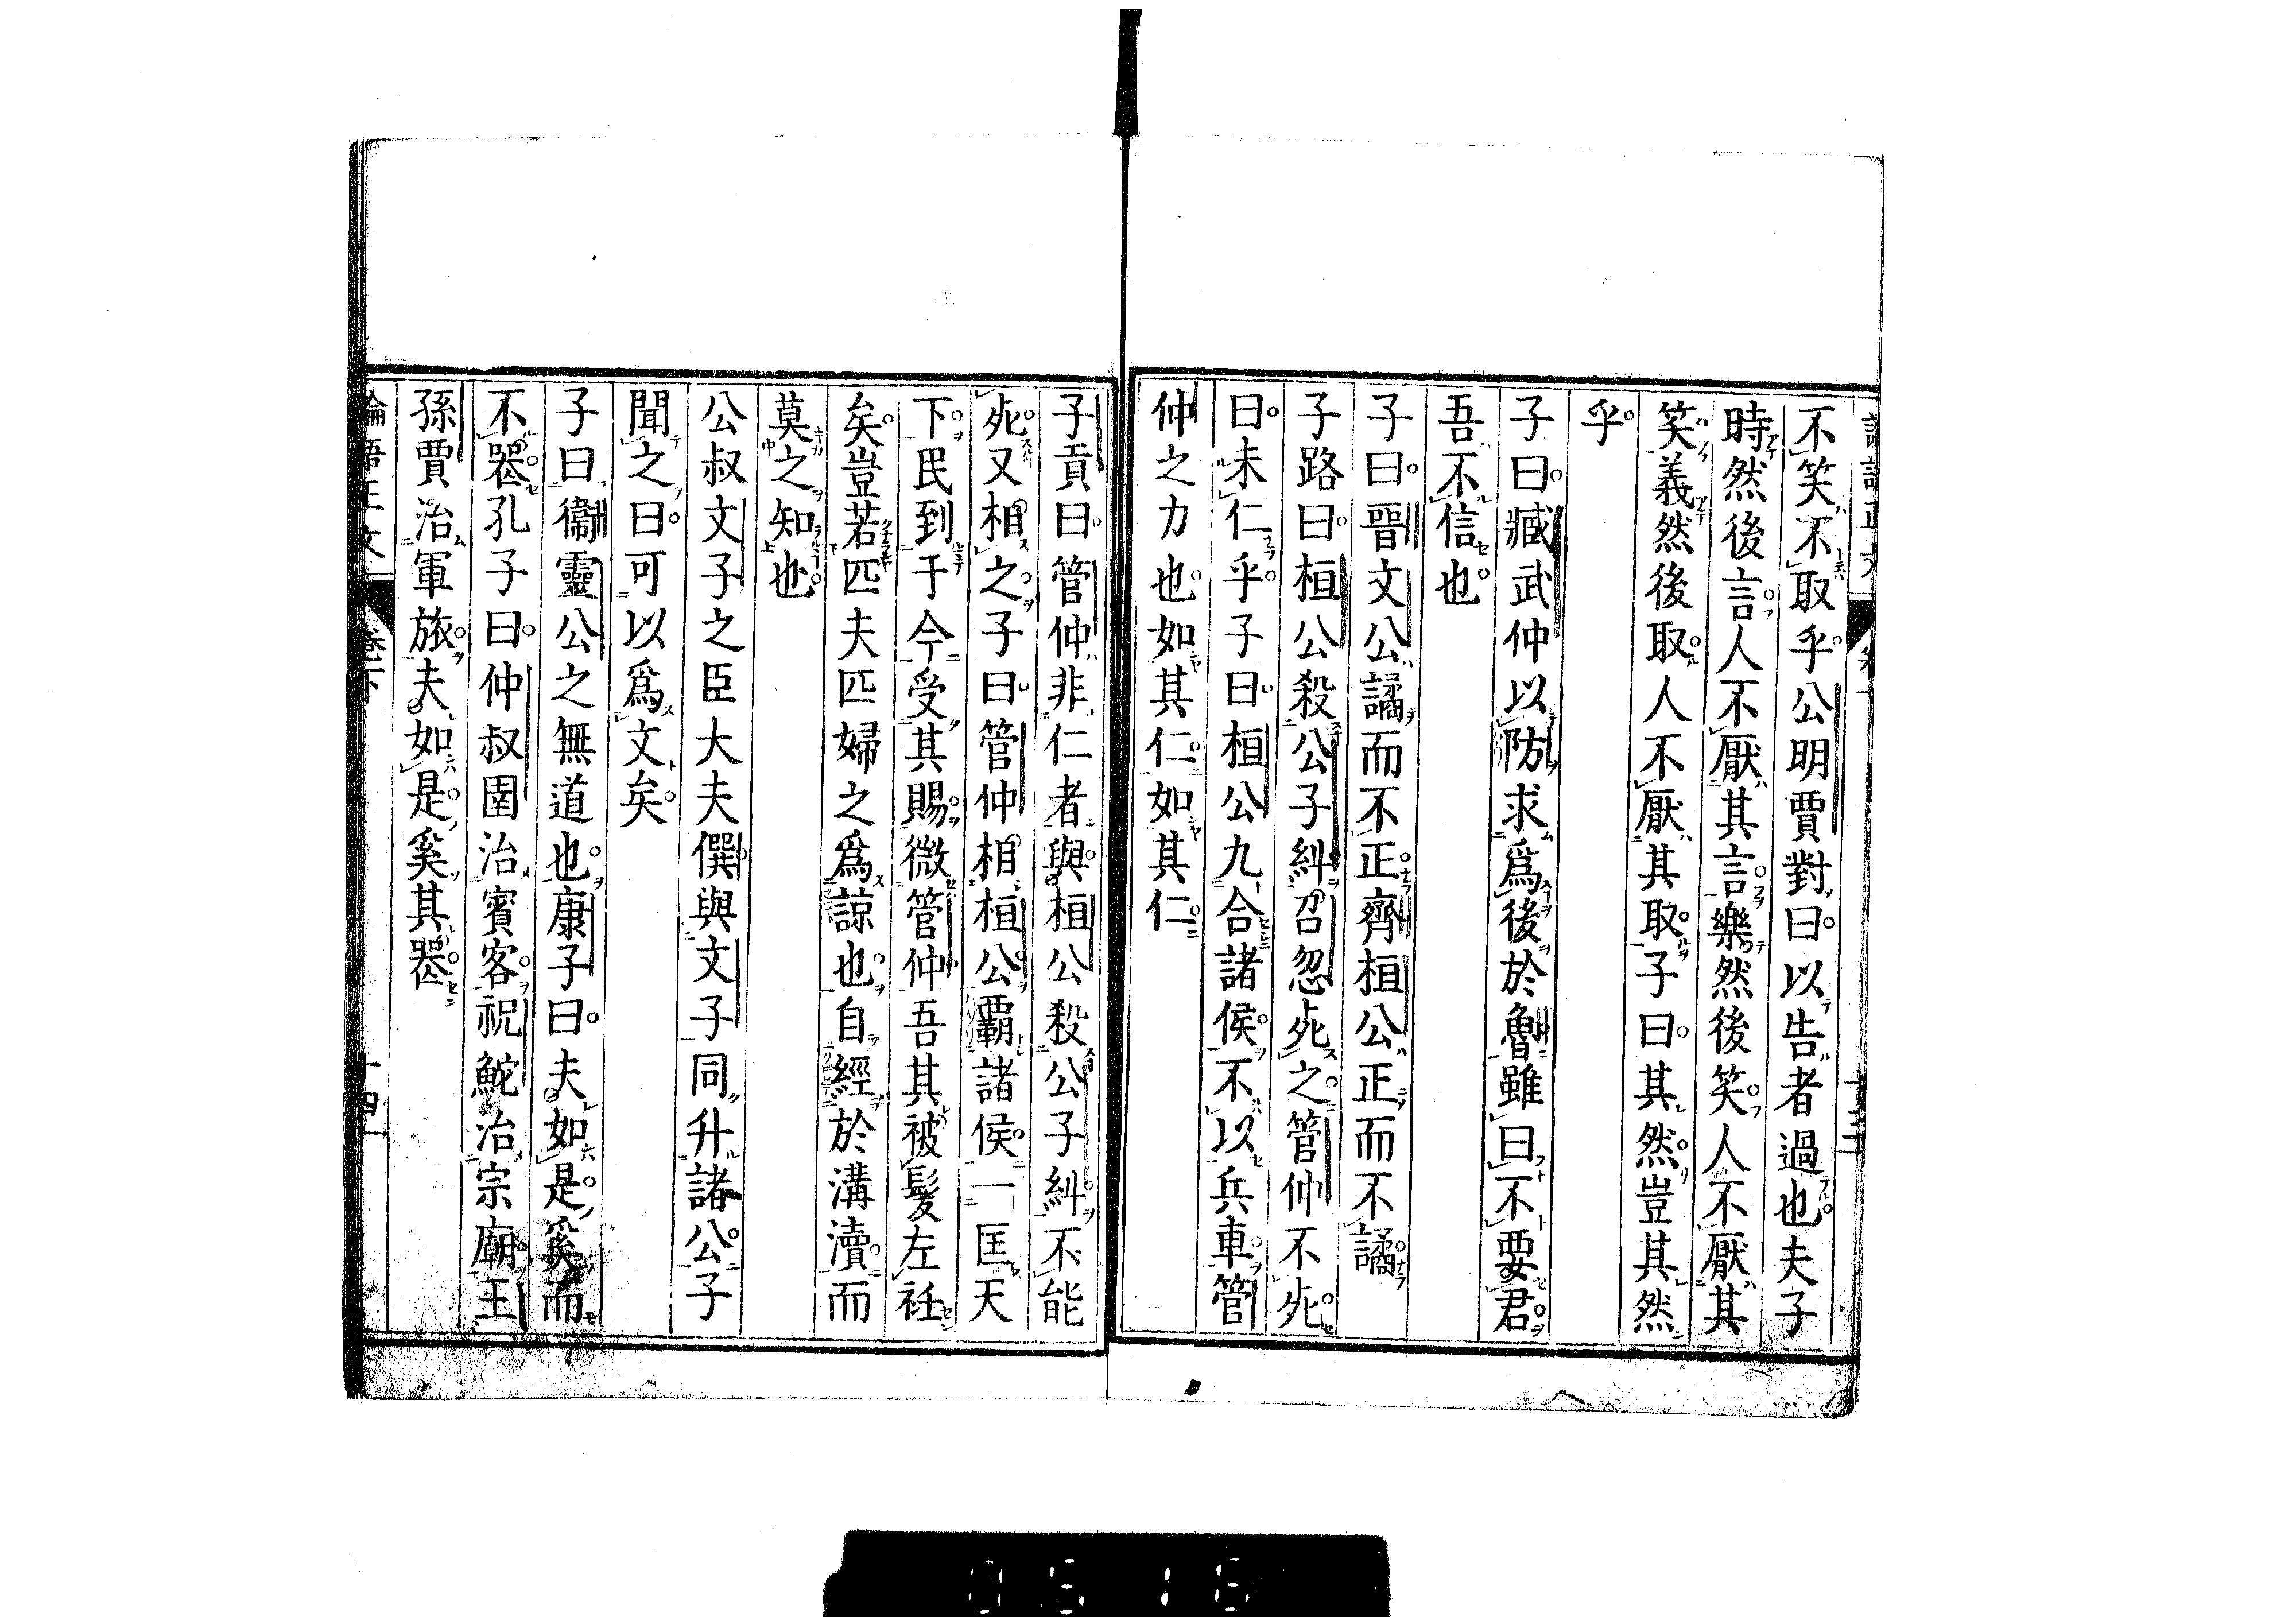 不笑不取乎公明賈對曰以告者過也夫子
時然後言人不厭其言樂然後笑人不厭其
笑義然後取人不厭其取子曰其然豈其然
乎
子曰臧武仲以防求爲後於魯雖曰不要君
吾不信也
子曰晉文公譎而不正齊桓公正而不譎
子路曰桓公殺公子糾召忽死之管仲不死
曰未仁乎子曰桓公九合諸侯不以兵車管
仲之力也如其仁如其仁
子貢曰管仲非仁者與桓公殺公子糾不能
死又相之子曰管仲相桓公霸諸侯一匡天
下民到于今受其賜微管仲吾其被髮左衽
矣豈若匹夫匹婦之爲諒也自經於溝瀆而
莫之知也
公叔文子之臣大夫僎與文子同升諸公子
聞之曰可以爲文矣
子曰衞靈公之無道也康子曰夫如是奚而
不喪孔子曰仲叔圉治賓客祝鮀治宗廟王
孫賈治軍旅夫如是奚其喪
論語正文 卷下 十四
0516